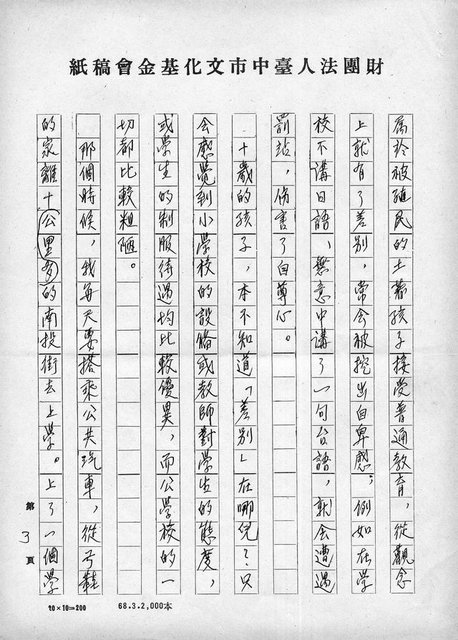 紙稿會金基化文市中臺人法團財
屬於被殖民的土著孩子接受普通教育，從觀念
上就有了差別，常會被挖出自卑感；例如在學
校不講日語、無意中講了一句台語，就會遭遇
罰站，傷害了自尊心。
十歲的孩子，本不知道「差別」在哪兒？只
會感覺到小學校的設備或教師對學生的態度，
或學生的制服待遇均比較優異，而公學校的一
切都比較粗陋。
那個時候，我每天要搭乘公共汽車，從弓鞋
的家離十公里多的南投街去上學。上了一個學
第3頁
10×10=200
68.3.2,000本